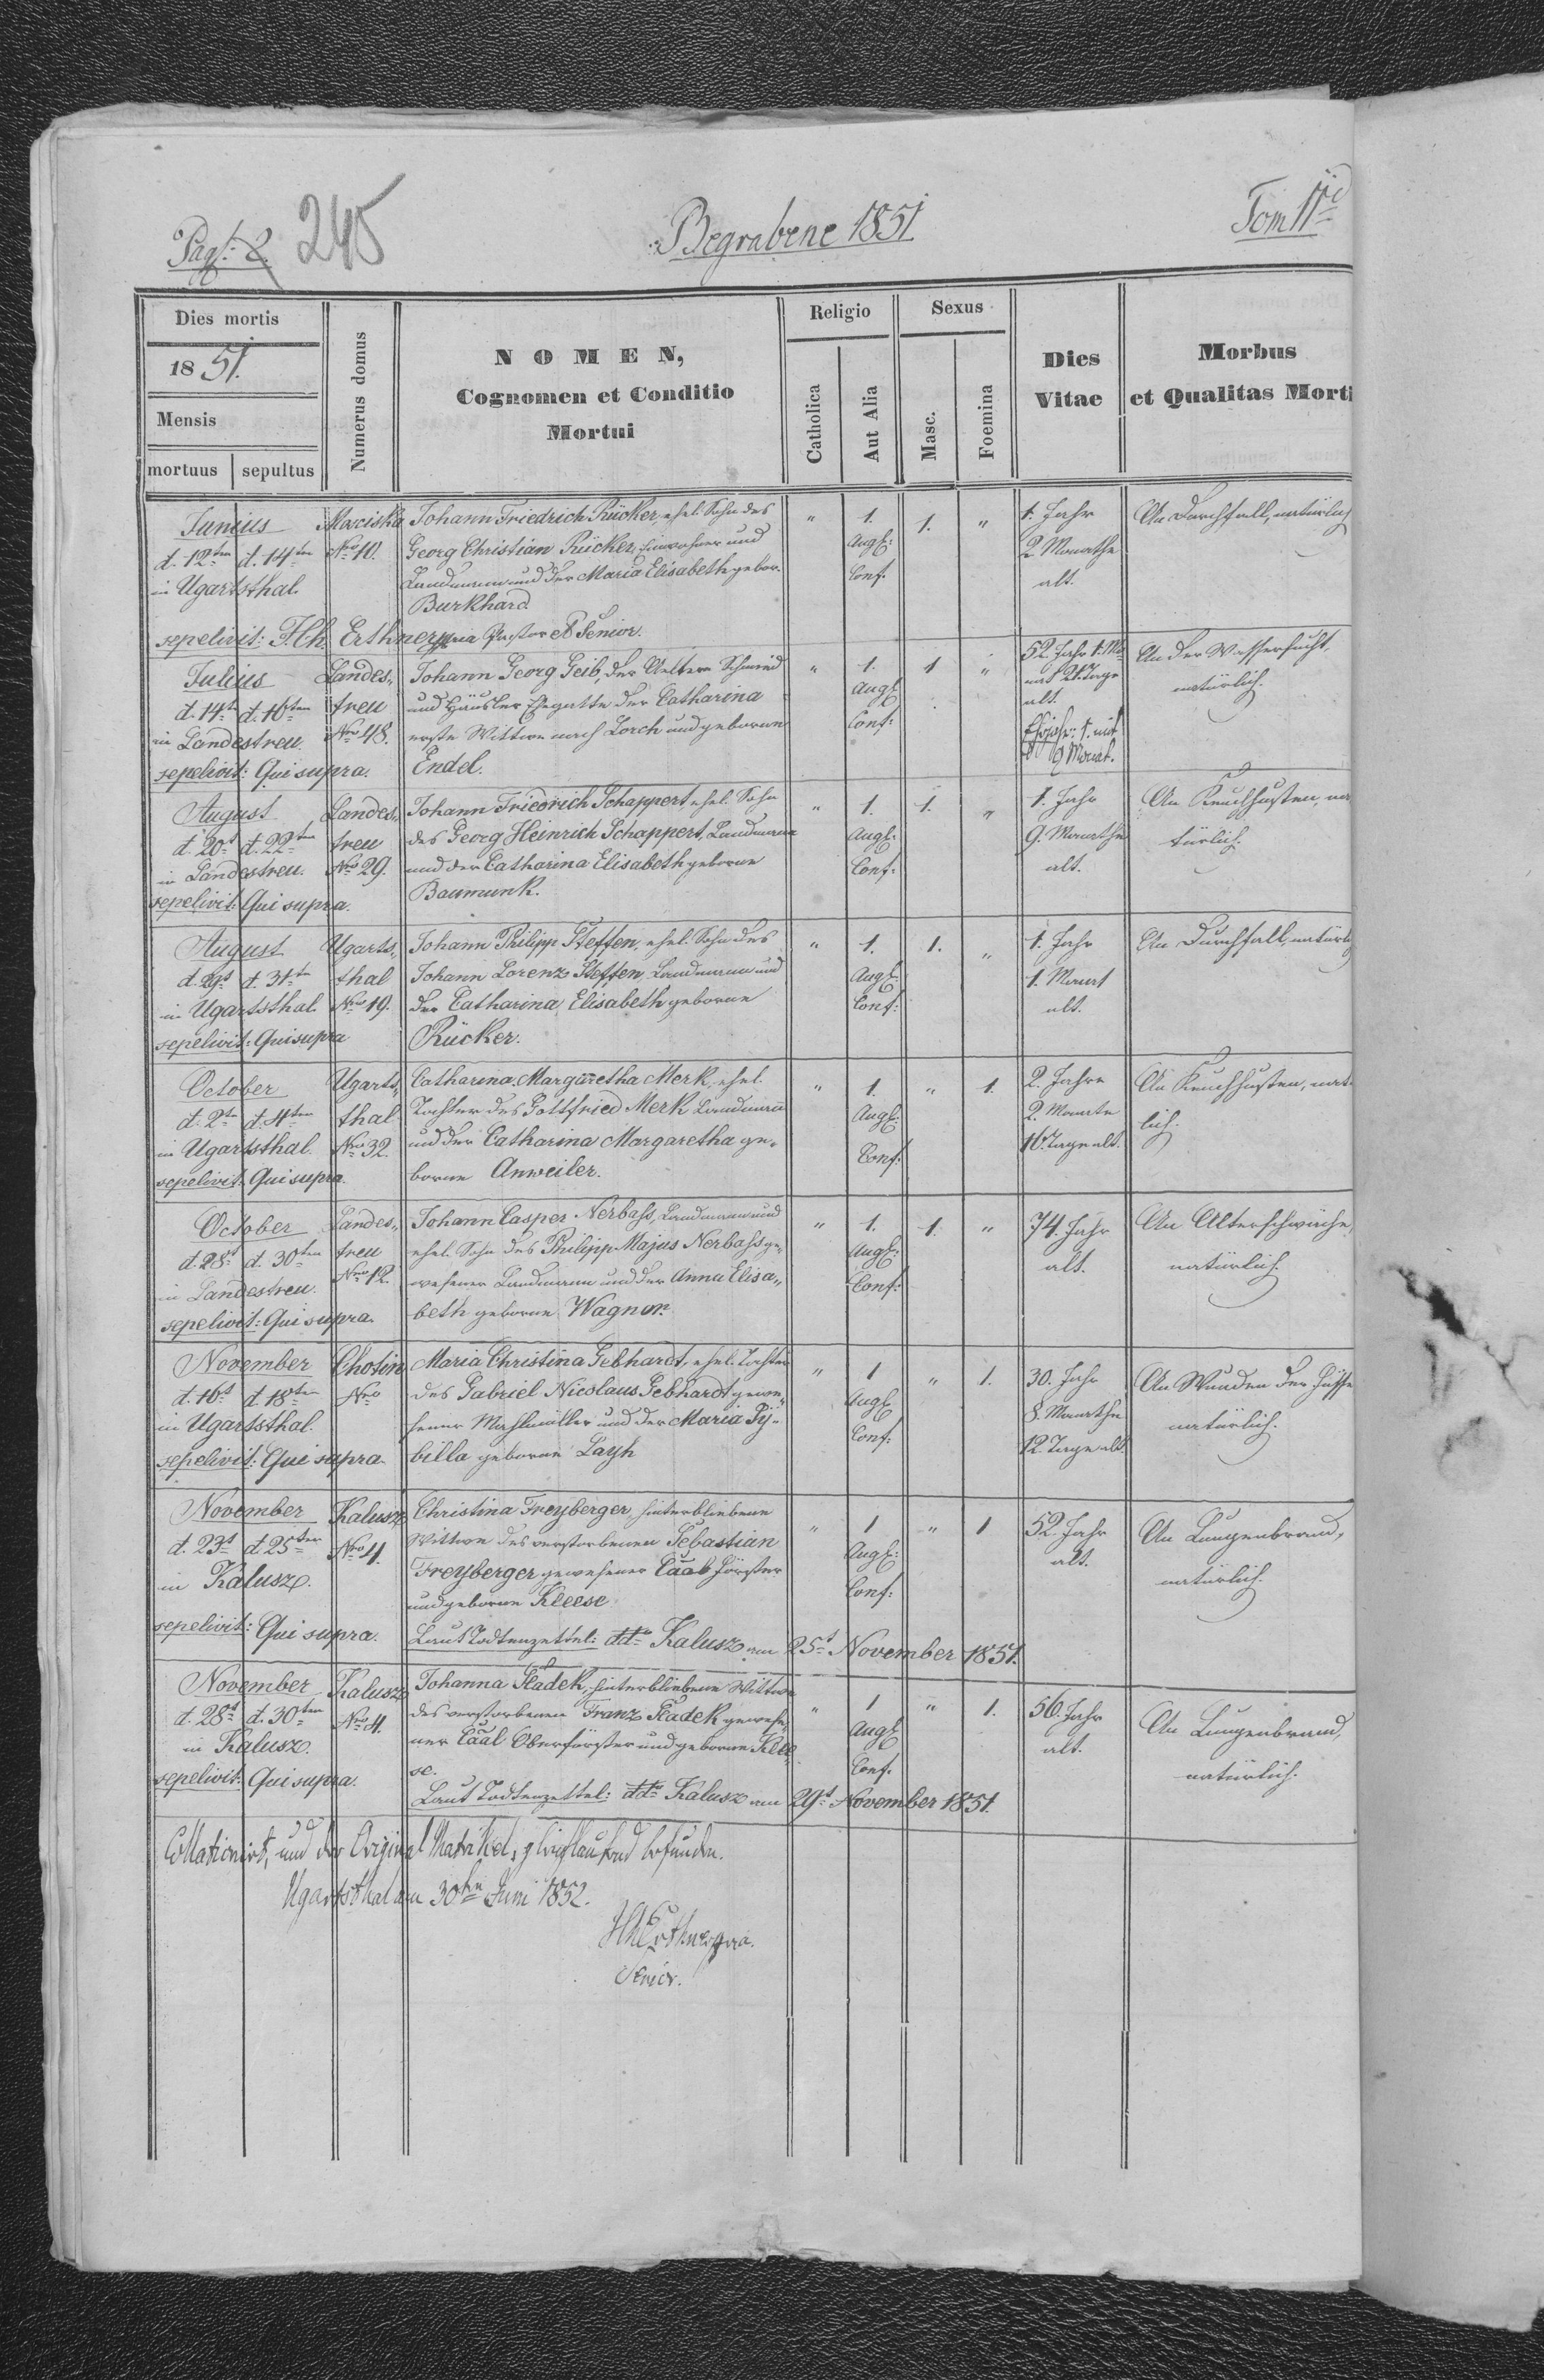 Pag: 2. 245
Begrabene 1851
Tom II
Dies mortis
1851.
Mensis
mortuus sepultus
Numerus domus
NOMEN,
Cognomen et Conditio
Mortui
Religio
Catholica
Aut Alia
Sexus
Masc.
Foemina
Dies
Vitae
Morbus
et Qualitas Morti
Junius Mosciska Johann Friedrich Rücker, ehel. Sohn des " 1. 1. " 1. Jahr An Durchfall, natürlich
d. 12ten d. 14ten Nro 10. Georg Christian Rücker, Einwohner und Augs: 2 Monathe
in Ugartsthal. Landmann und der Maria Elisabeth gebor. Conf. alt.
Burkhard
sepelivit: F. Ch. Erthner Pastor et Senior.
Julius Landes„ Johann Georg Geib, der Aeltere Schmied " 1. 1 " 52 Jahr 1. Mo„ An der Wassersucht,
d. 14t d. 16ten treu und Häusler Ehegatte der Catharina Augs. nat 21 Tage natürlich.
in Landestreu. Nro 48. erste Wittwe nach Lorch und geborne Conf: alt.
sepelivit: Qui supra. Endel. Ehejahr: 1. mit 9 Monat.
August Landes„ Johann Friedrich Schappert, ehel. Sohn " 1. 1. " 1. Jahr An Keuchhusten, na
d. 20t d. 22ten treu des Georg Heinrich Schappert, Landmann Augs: 9. Monathe türlich.
in Landestreu. Nro 29. und der Catharina Elisabeth geborne Conf: alt.
sepelivit: Qui supra. Baumunk.
August Ugarts„ Johann Philipp Steffen, ehel. Sohn des " 1. 1. " 1. Jahr An Durchfall, natürli
d. 29t d. 31t thal Johann Lorenz Steffen Landmann und Augs. 1. Monat
in Ugartsthal. Nro 19. der Catharina Elisabeth geborne Conf: alt.
sepelivit: Qui supra Rücker.
October Ugarts„ Catharina Margaretha Merk, ehel. " 1. " 1. 2. Jahre An Keuchhusten, nat
d. 2ten d. 4ten thal Tochter des Gottfried Merk Landmann Augs: 2. Monate lich.
in Ugartsthal. Nro 32. und der Catharina Margaretha ge„ Conf: 16. Tage alt.
sepelivit: Qui supra. borne Anweiler.
October Landes„ Johann Casper Nerbass, Landmann und " 1. 1. " 74. Jahr An Alterschwäche,
d. 28t d. 30ten treu ehel. Sohn des Philipp Majus Nerbass ge„ Augs: alt. natürlich.
in Landestreu. Nro 12. wesener Landmann und der Anna Elisa„ Conf:
sepelivit: Qui supra. beth geborne Wagner.
November Chotin Maria Christina Gebhardt, ehel. Tochter " 1 " 1. 30. Jahr An Wunden der Füsse
d. 16t d. 18ten Nro des Gabriel Nicolaus Gebhardt gewe„ Augs. 8. Monathe natürlich.
in Ugartsthal. sener Mahlmüller und der Maria Sy„ Conf: 12 Tage alt.
sepelivit: Qui supra. billa geborne Layh
November Kalusz Christina Freyberger, hinterbliebene " 1 " 1 52. Jahr An Lungenbrand,
d. 23t d. 25ten Nro 4. Wittwe des verstorbenen Sebastian Augs: alt. natürlich.
in Kalusz. Freyberger gewesener Caal Förster Conf:
und geborne Kleese
sepelivit: Qui supra. Laut Todtenzettel: ddo Kalusz am 25t November 1851.
November Kalusz Johanna Sladek, hinterbliebene Wittwe " 1 " 1. 56. Jahr An Lungenbrand,
d. 28t d. 30ten Nro 4. des verstorbenen Franz Sladek gewese„ Augs. alt. natürlich.
in Kalusz. ner Caal Oberförster und geborne Klee„ Conf.
sepelivit: Qui supra. se.
Laut Todtenzettel: ddo Kalusz am 29t November 1851.
Collationirt, und der Original Matrikel, gleichlautend befunden.
Ugartsthal am 30ten Juni 1852.
Erthner
Senior.